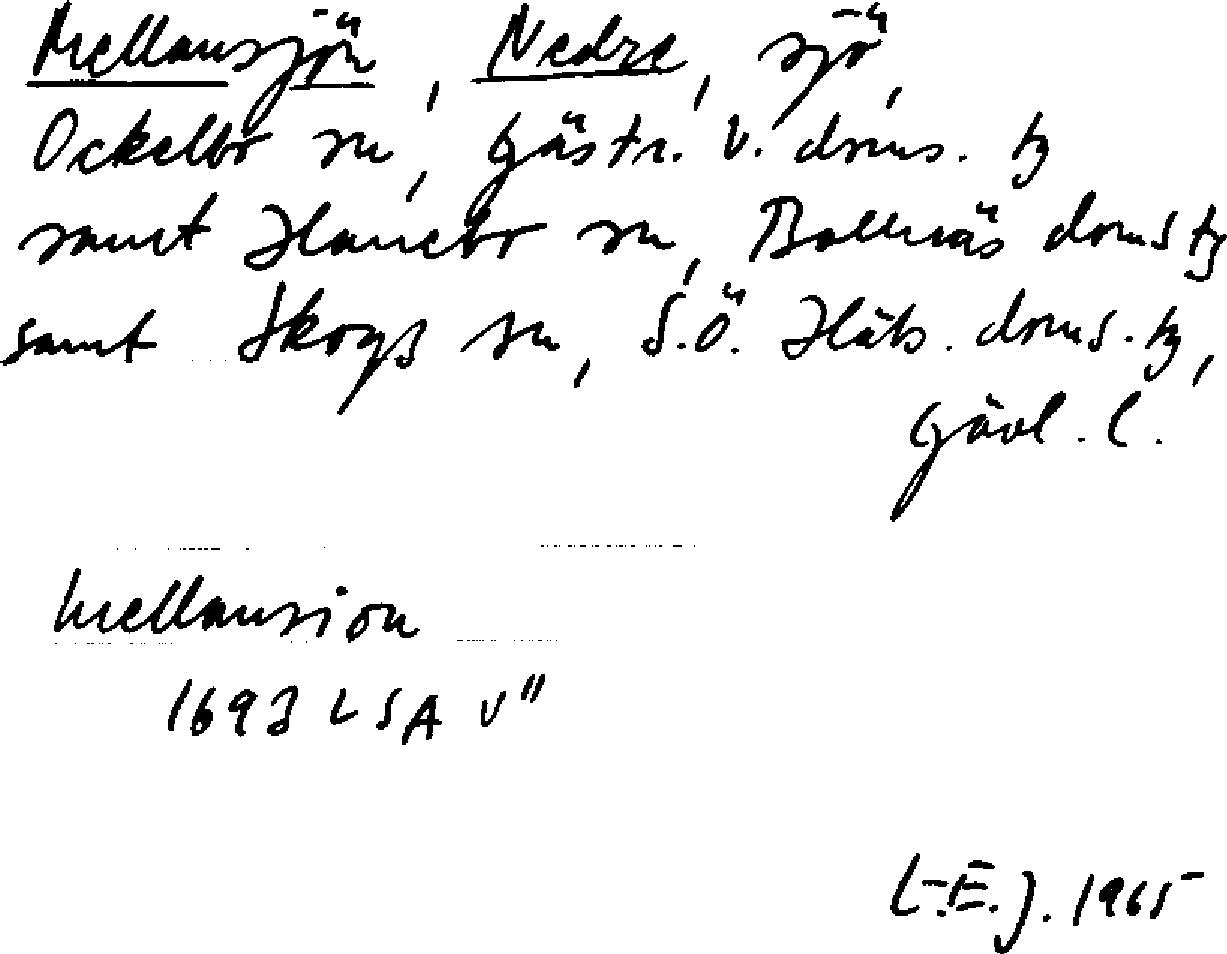 Mellansjön, Nedre, sjö,
Ockelbo sn, Gästr. V. doms. tg
samt Hanebo sn, Bollnäs doms tg
samt Skogs sn, S.Ö. Häls. doms. tg,
Gävl. l.
Mellansion
1693 LSA V"
L-E.J. 1965